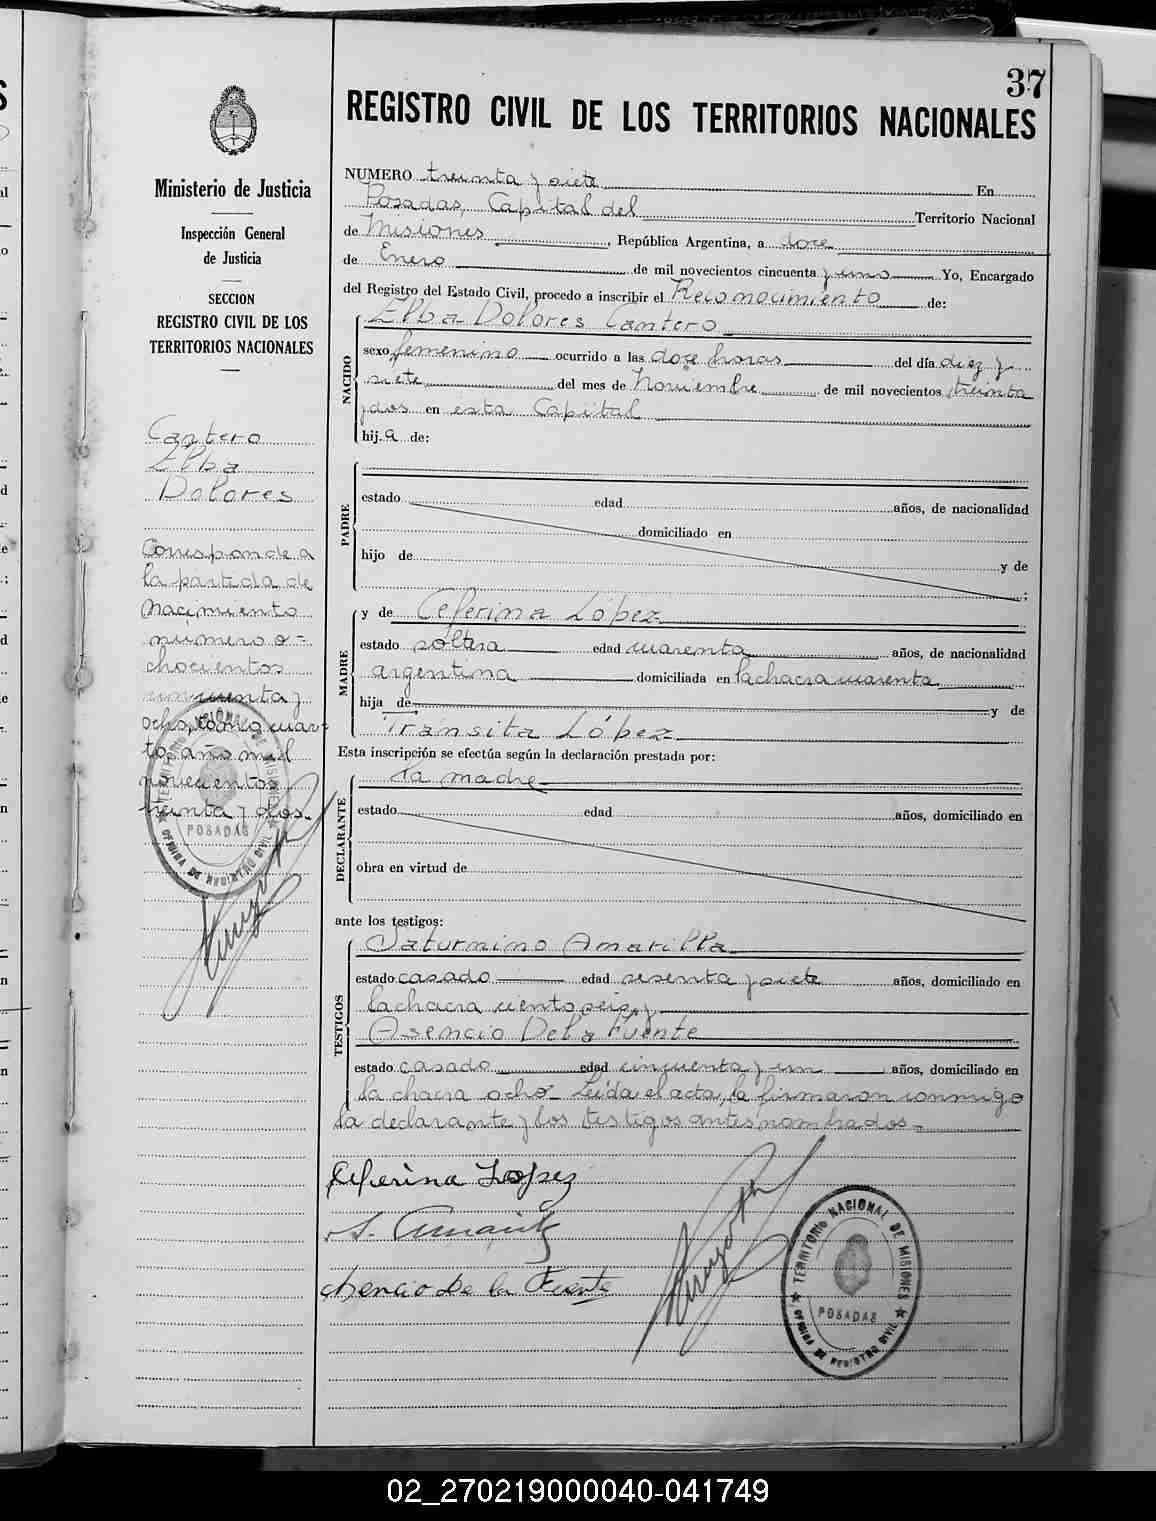 37
REGISTRO CIVIL DE LOS TERRITORIOS NACIONALES
Ministerio de Justicia
Inspección General
de Justicia
SECCION
REGISTRO CIVIL DE LOS
TERRITORIOS NACIONALES
Cantero
Elba
Dolores
Corresponde a
la partida de
nacimiento
número o-
chocientos
cincuenta y
ocho, tomo cuar-
to, año mil
novecientos
treinta y dos.
TERRITORIO NACIONAL DE MISIONES
POSADAS
OFICINA DE REGISTRO CIVIL
NUMERO treinta y siete En
Posadas, Capital del Territorio Nacional
de Misiones, República Argentina, a doce
de Enero de mil novecientos cincuenta y uno Yo, Encargado
del Registro del Estado Civil, procedo a inscribir el Reconocimiento de:
NACIDO
Elba Dolores Cantero
sexo femenino ocurrido a las doce horas del día diez y
siete del mes de Noviembre de mil novecientos treinta
y dos en esta Capital
hij.a de:
PADRE
estado edad años, de nacionalidad
domiciliado en
hijo de y de
;
MADRE
y de Ceferina López
estado soltera edad cuarenta años, de nacionalidad
argentina domiciliada en la chacra cuarenta
hija de y de
Tránsita López
Esta inscripción se efectúa según la declaración prestada por:
DECLARANTE
la madre
estado edad años, domiciliado en
obra en virtud de
ante los testigos:
TESTIGOS
Saturnino Amarilla
estado casado edad sesenta y siete años, domiciliado en
la chacra ciento seis, y
Asencio De la Fuente
estado casado edad cincuenta y un años, domiciliado en
la chacra ocho Leída el acta, la firmaron conmigo
la declarante y los testigos antes nombrados.
Ceferina Lopez
S. Amarilla
Asencio De la Fuente
TERRITORIO NACIONAL DE MISIONES
POSADAS
OFICINA DE REGISTRO CIVIL
02_270219000040-041749